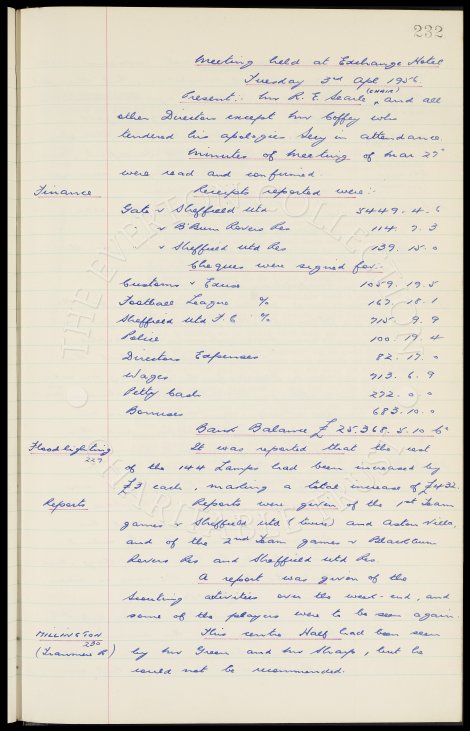 232
Meeting held at Exchange Hotel
Tuesday 3rd Apl 1956.
Present:- Mr R. E. Searle (CHAIR), and all
other Directors except Mr Coffey who
tendered his apologies. Secy in attendance.
Minutes of Meeting of Mar 27th
were read and confirmed
Finance Receipts reported were:-
Gate v Sheffield Utd 5449. 4. 6
v B'Burn Rovers Res 114. 7. 3
v Sheffield Utd Res 139. 15. 0
Cheques were signed for:-
Customs & Excise 1059. 19. 5
Football League % 167. 18. 1
Sheffield Utd F C % 715. 9. 9
Police 100. 19. 4
Directors Expenses 82. 17. 0
Wages 713. 6. 9
Petty Cash 272. 0. 0
Bonuses 683. 10. 0
Bank Balance £ 25,368. 5. 10
Floodlighting It was reported that the cost
229
of the 144 Lamps had been increased by
£3 each, making a total increase of £432.
Reports Reports were given of the 1st Team
games v Sheffield Utd (twice) and Aston Villa,
and of the 2nd Team games v Blackburn
Rovers Res and Sheffield Utd Res.
A report was given of the
Scouting activities over the week-end, and
some of the players were to be seen again.
MILLINGTON This centre Half had been seen
230
(Tranmere R) by Mr Green and Mr Sharp, but he
could not be recommended.
THE EVERTON COLLECTION
CHARITABLE